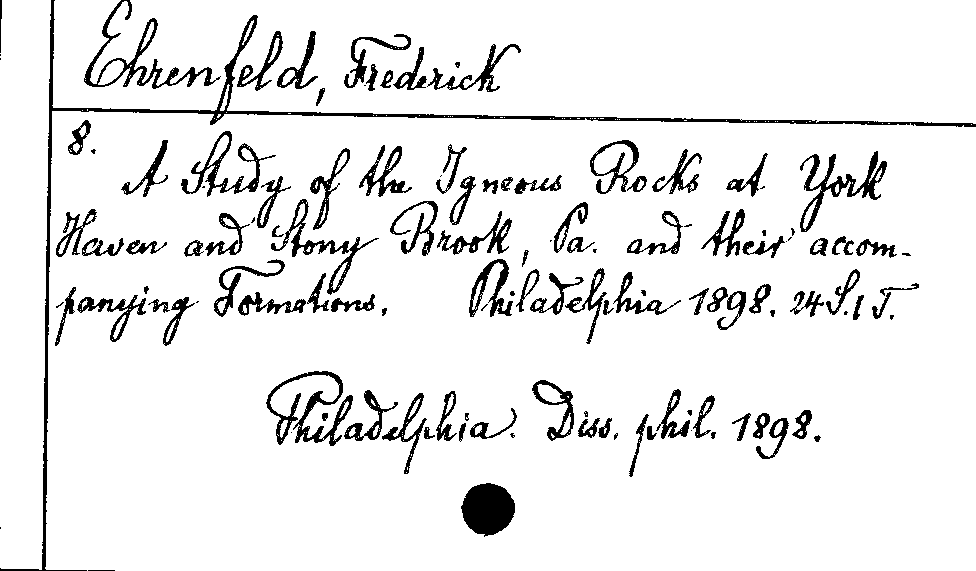 Ehrenfeld, Frederick
8.
A Study of the Igneous Rocks at York
Haven and Stony Brook, Pa. and their accom-
panying Formations. Philadelphia 1898. 24 S. 1 T.
Philadelphia. Diss. phil. 1898.